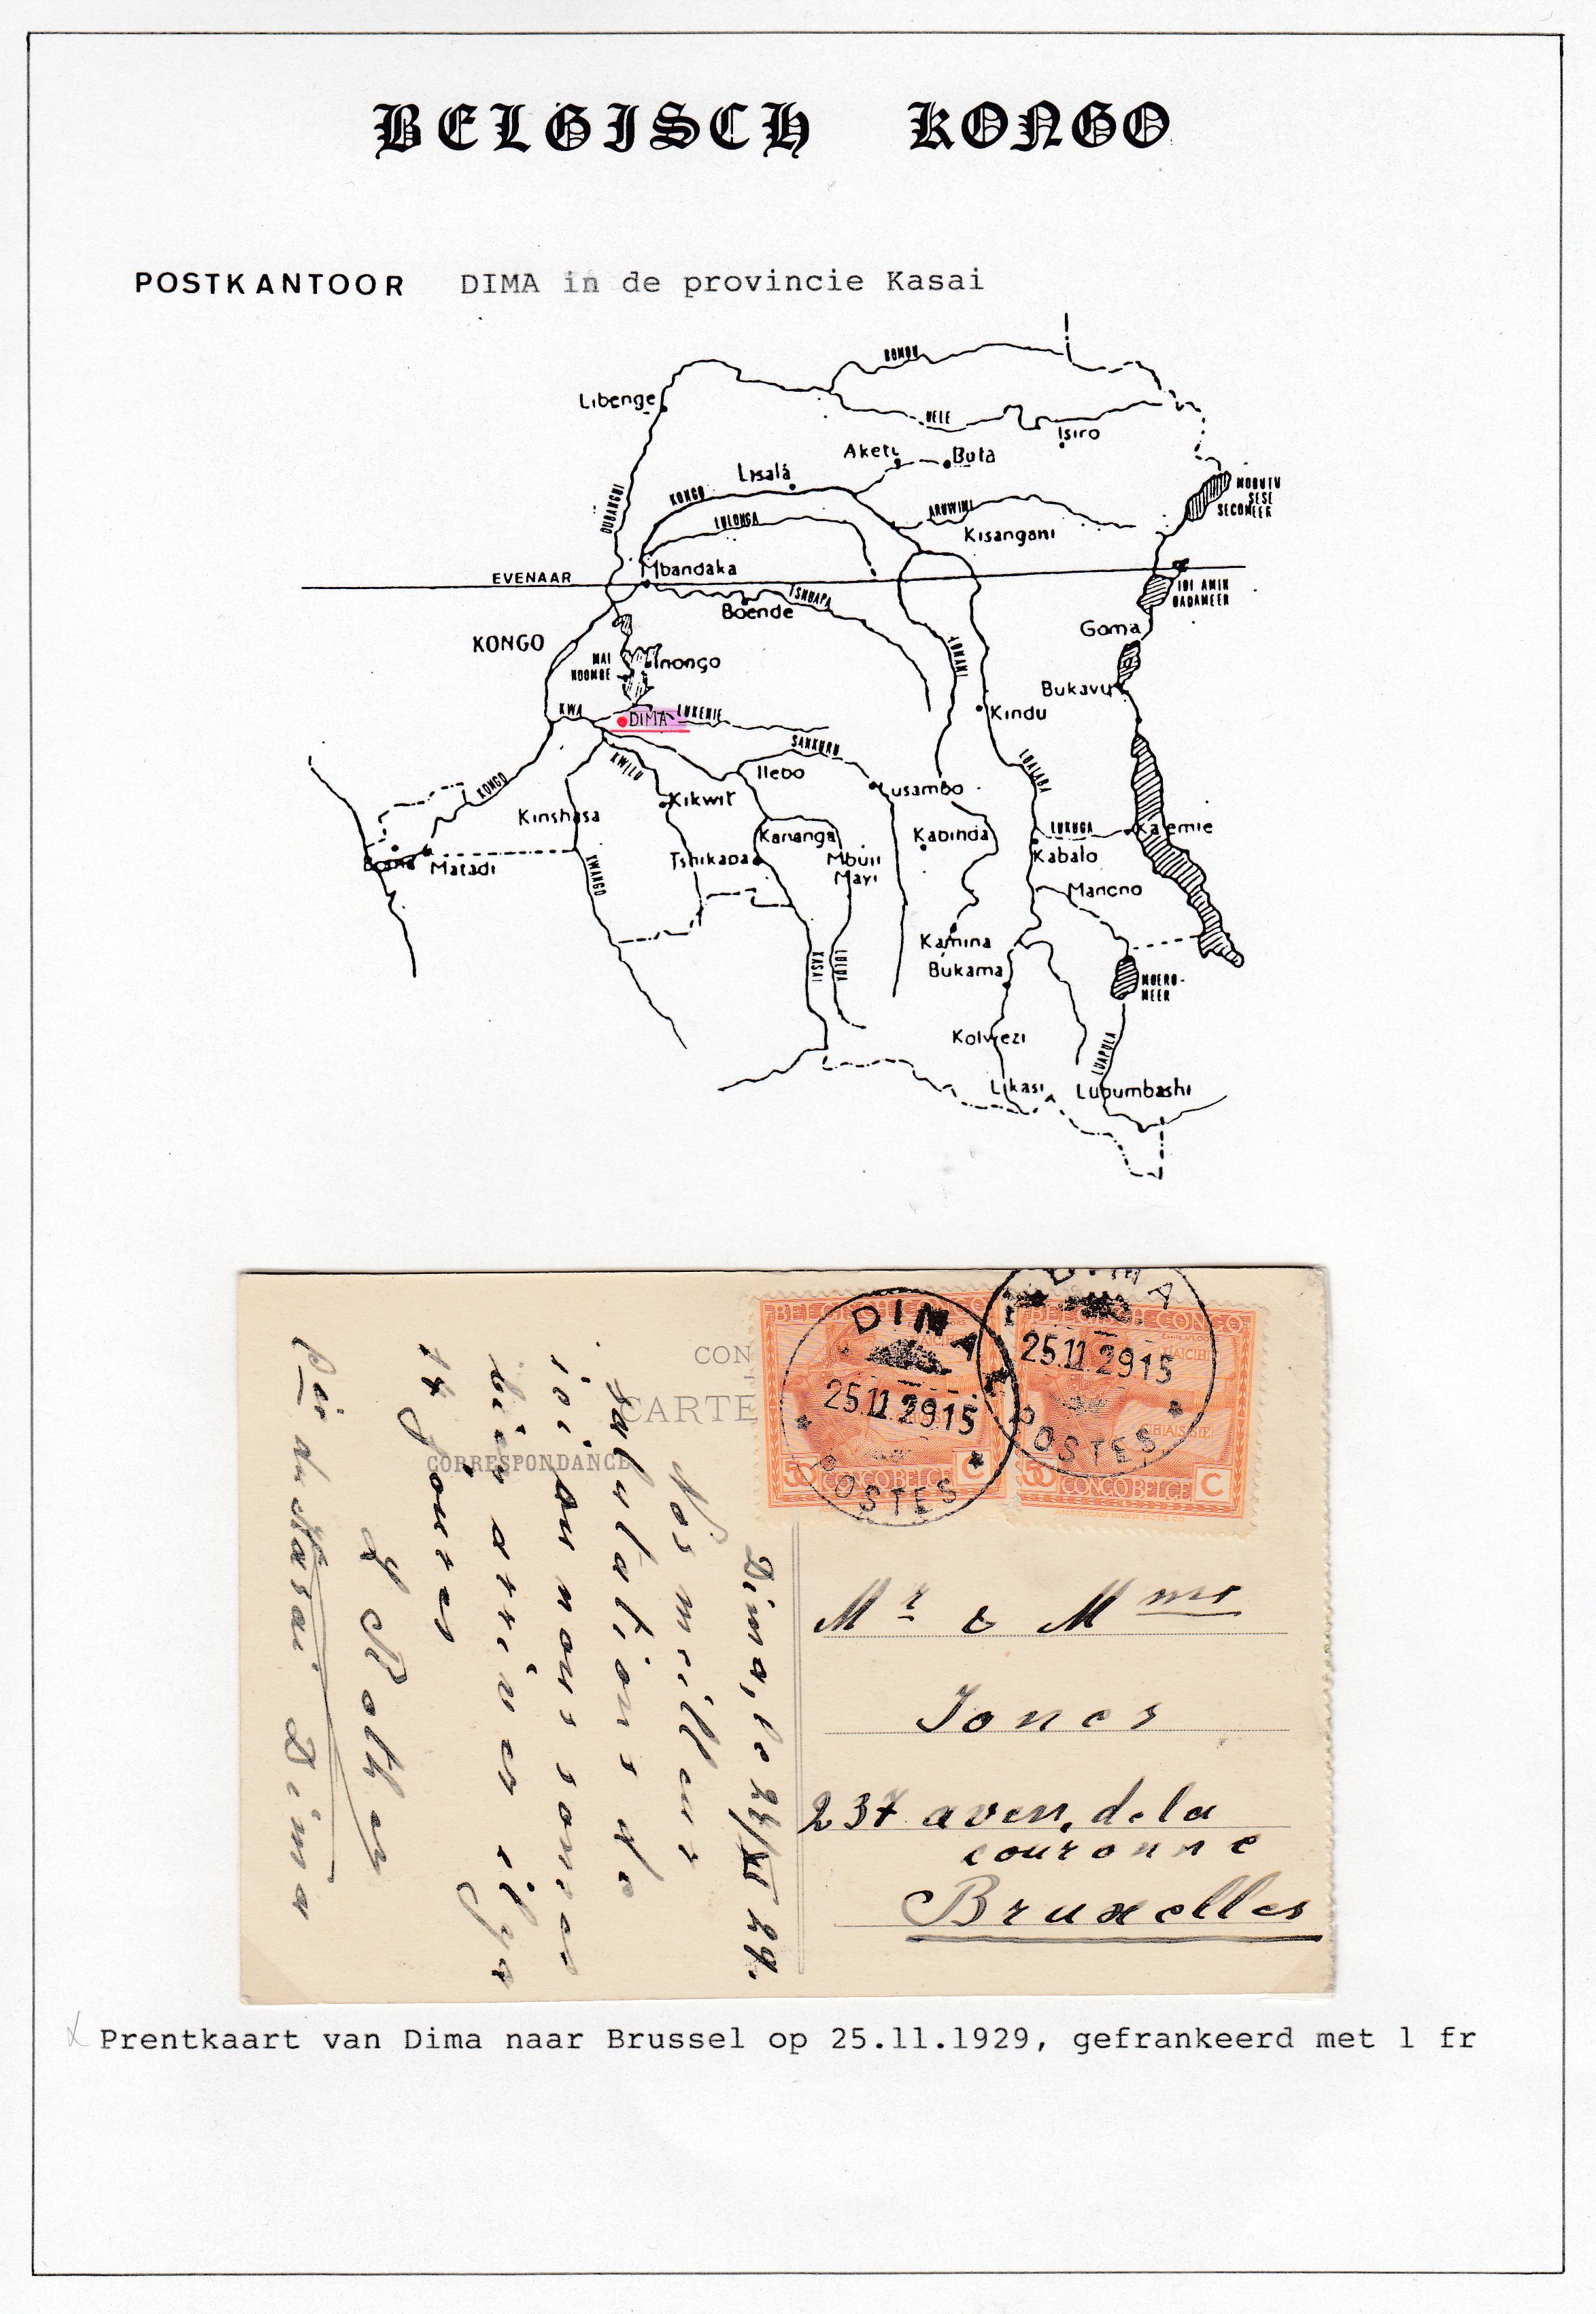 BELGISCH KONGO
POSTKANTOOR DIMA in de provincie Kasai
BOMOU
Libenge
UELE
Isiro
Aketi
Buta
Lisala
KONGO
OUBANGHI
MOBUTU
SESE
SECOMEER
LULONGA
ARUWIMI
Kisangani
EVENAAR
Mbandaka
TSHUAPA
Boende
IDI AMIN
DADAMEER
Goma
KONGO
LOMAMI
MAI
NDOMBE
Inongo
Bukavu
KWA
DIMA
LUKENIE
Kindu
SANKURU
KWILU
Ilebo
LUALABA
Lusambo
KONGO
Kikwit
Kinshasa
Kananga
Kabinda
LUKUGA
Kalemie
Boma
Matadi
KWANGO
Tshikapa
Mbuji
Mayi
Kabalo
Manono
KASAI
LULUA
Kamina
Bukama
MOERO-
MEER
Kolwezi
LUAPULA
Likasi
Lubumbashi
BELGISCH CONGO
50 CONGO BELGE C
DIMA
25.11.29 15
POSTES
BELGISCH CONGO
50 CONGO BELGE C
AMERICAN BANK NOTE CO.
DIMA
25.11.29 15
POSTES
CON
CARTE
CORRESPONDANCE
Dima, le 24/XI 29.
Nos meilleurs
salutations de
ici ou nous sommes
bien arrives il y a
14 jours
du Kasai Dima
Mr & Mme
Jones
237 aven. de la
couronne
Bruxelles
Prentkaart van Dima naar Brussel op 25.11.1929, gefrankeerd met 1 fr